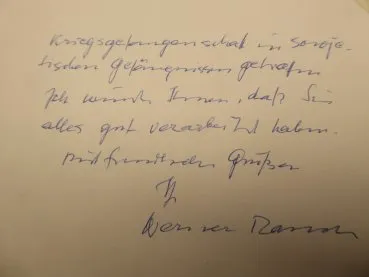 Kriegsgefangenschaft in sowje-
tischen Gefängnissen
Ich wünsche Ihnen, daß Sie
alles gut verarbeitet haben.
Mit freundlichen Grüßen
Werner